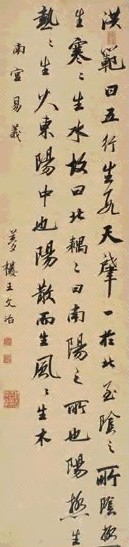 洪範曰五行生數天肇一於北至陰之所陰極
生寒〻生水故曰北耦二曰南陽之所也陽極生
熱〻生火東陽中也陽散而生風〻生木
南宫易義
夢樓王文治